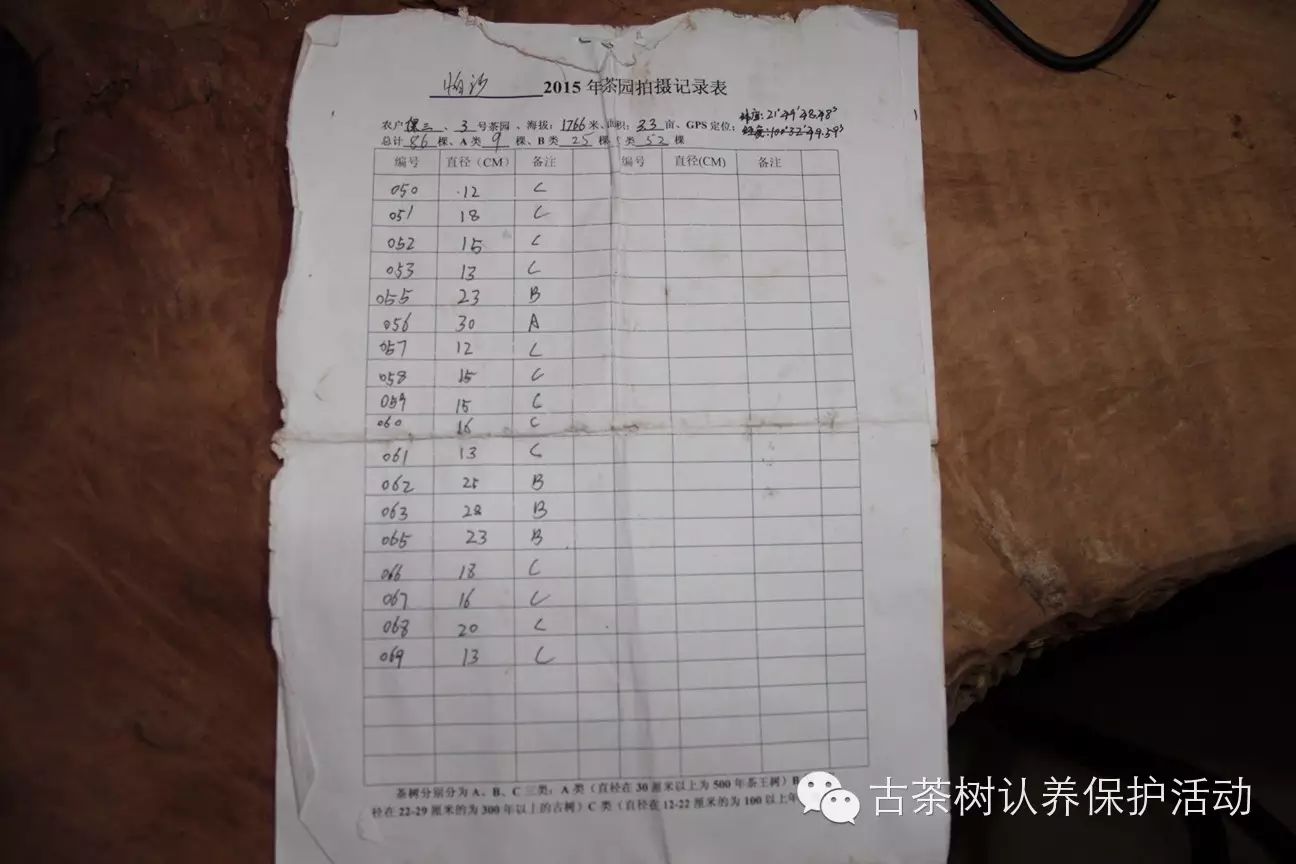 帕沙 2015年茶园拍摄记录表
纬度:21°49′48.48″
农户 三、3号茶园、海拔:1766米、面积:33亩、GPS定位:经度:100°32′49.59″
总计86棵、A类9棵、B类25棵 类52棵
编号 直径(CM) 备注 编号 直径(CM) 备注
050 12 C
051 18 C
052 15 C
053 13 C
055 23 B
056 30 A
057 12 C
058 15 C
059 15 C
060 16 C
061 13 C
062 25 B
063 28 B
065 23 B
066 18 C
067 16 C
068 20 C
069 13 C
茶树分别分为A、B、C三类:A类(直径在30厘米以上为500年茶王树)B
径在22-29厘米的为300年以上的古树)C类(直径在12-22厘米的为100以上年
古茶树认养保护活动